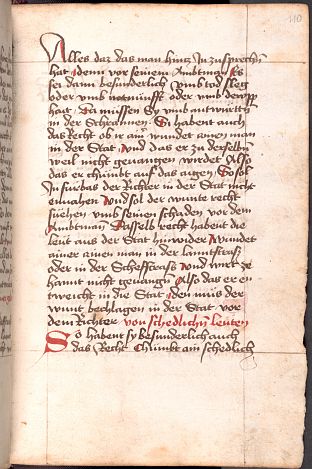 110
Alles daz das man hintz In zusprechn
hat denn vor seinem Ambtman Es
sei dann besunderlich umb tod sleg
oder umb notnunfft oder umb deupp
hait. Da müssen Sy umb antwurttn
in der Schrannen. Si habent auch
das Recht ob ir ainer wundet ainen man
in der Stat. und das er zu derselbn
weil nicht geuangen wirdet Also
das er chumbt auf das aigen. So sol
In fürbas der Richter in der Stat nicht
eniahen und sol der wunte recht
suchen umb seinen schaden vor dem
Ambtman Dasselb recht habent die
leut aus der Stat hinwider Wundet
ainer ainen man in der lanntstrass
oder in der Scheffstrass und wirt ze
hannt nicht geuangn Also das er en
tweicht in die Stat. den mus der
wunt bechlagen in der Stat vor
dem Richter von schedlichn leuten
So habent sy besunderlich auch
das Recht Chumbt ain schedlich